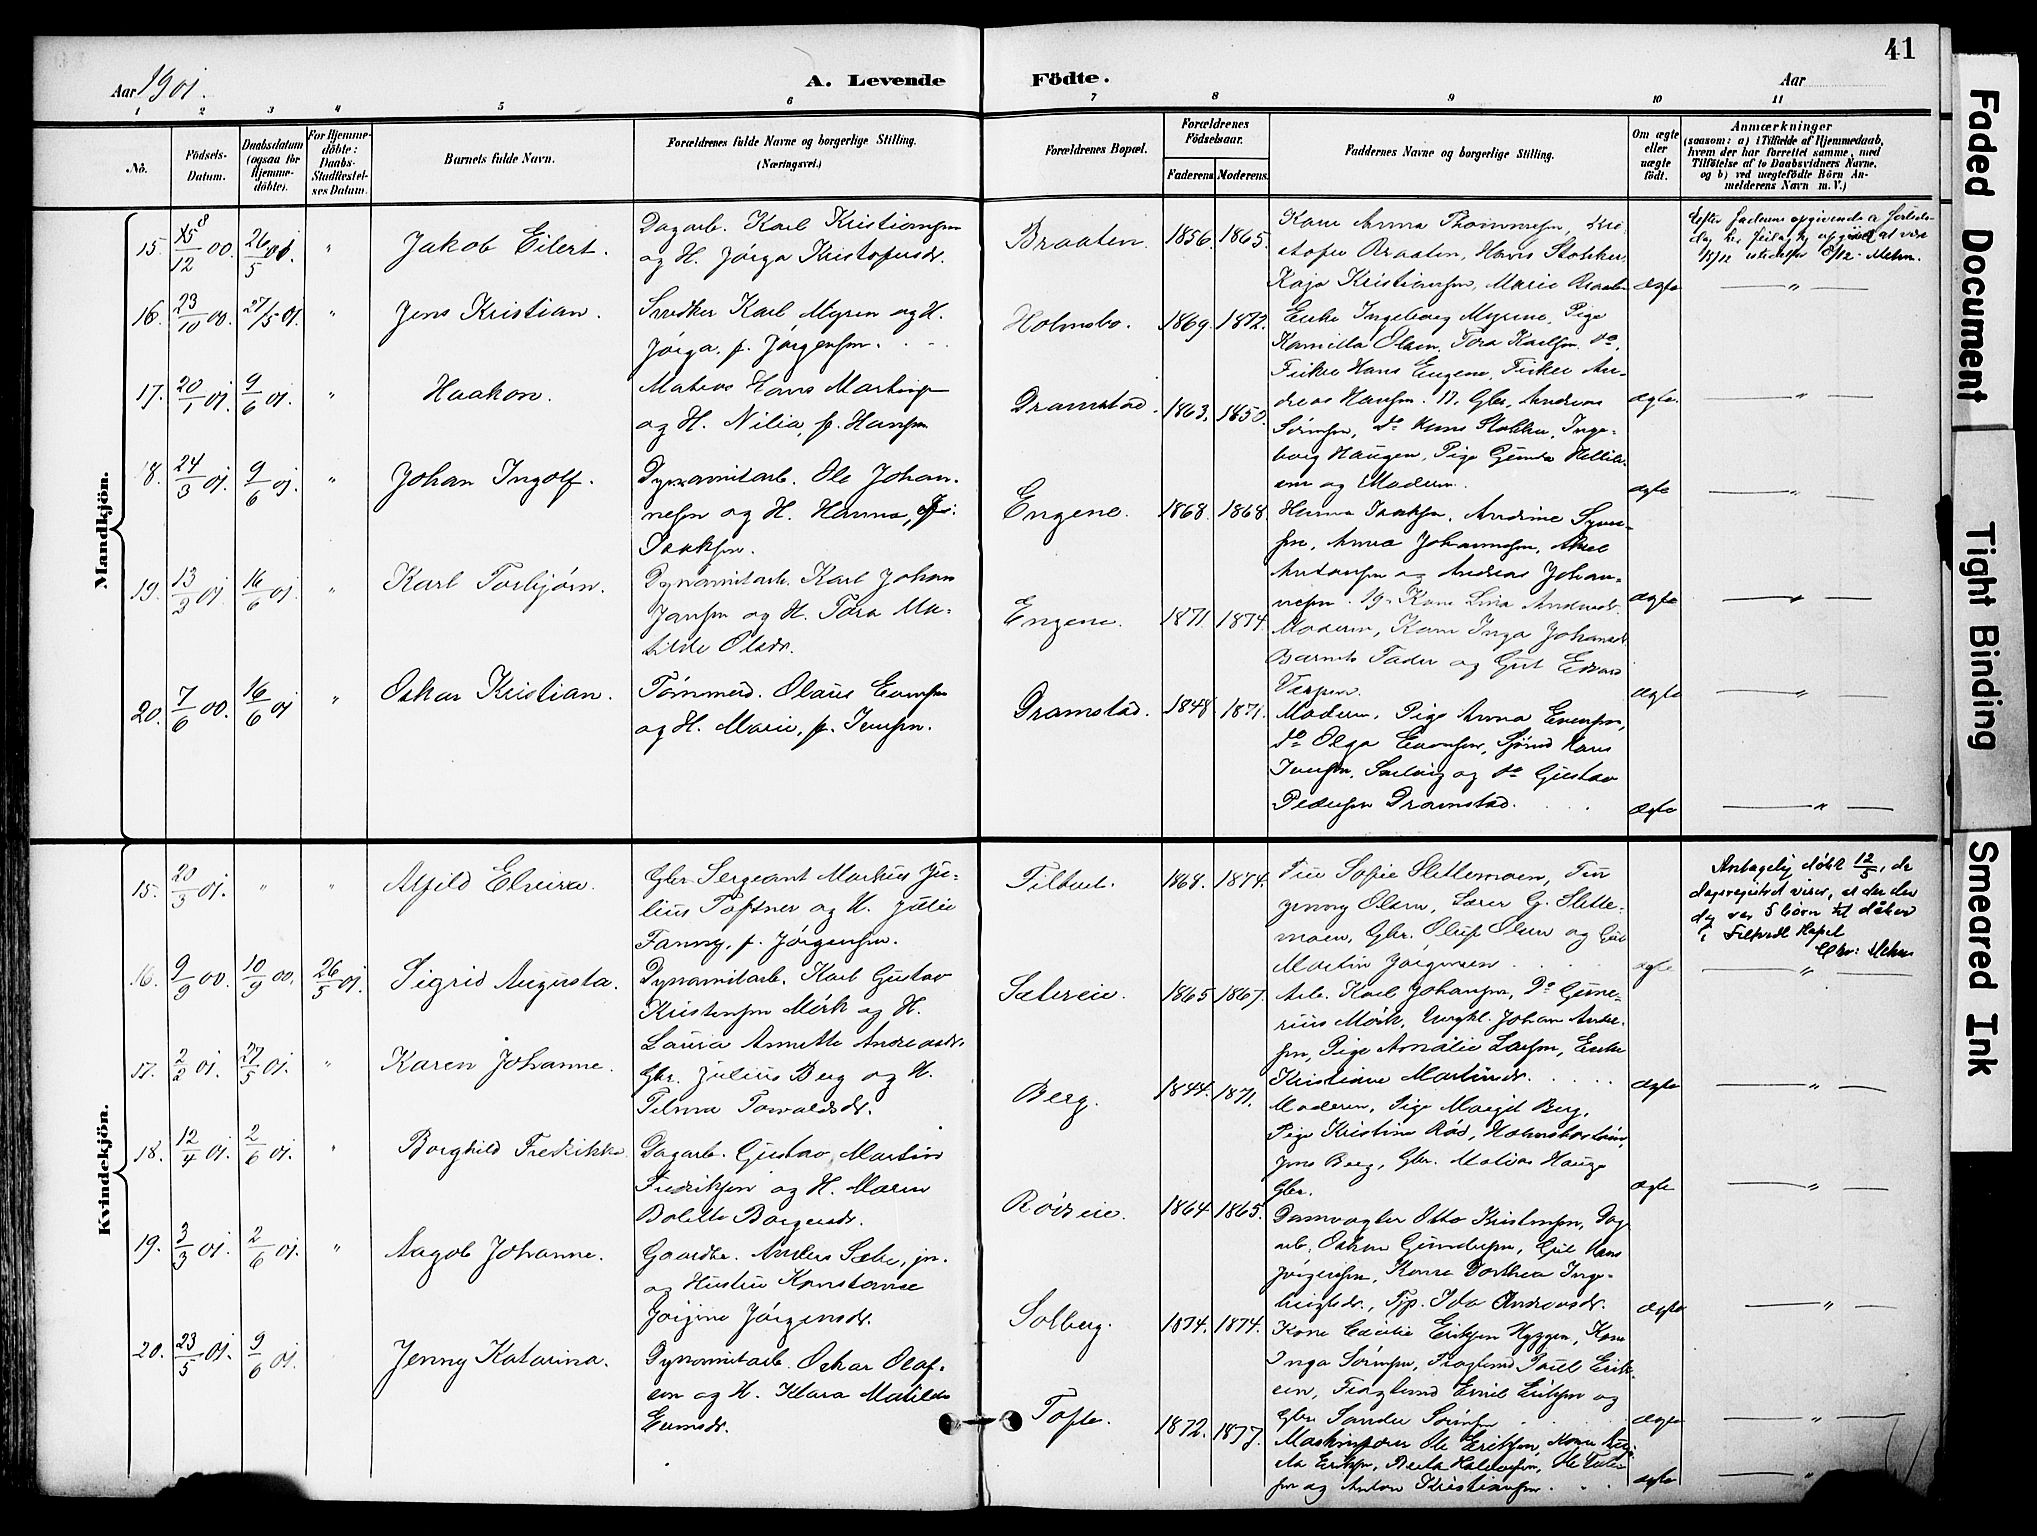 41
Aar 1901.
A. Levende
Födte.
Aar
1 2 3 4 5 6 7 8 9 10 11
No.
Födsels-
Datum.
Daabsdatum
(ogsaa for
Hjemme-
döbte).
For Hjemme-
döbte:
Daabs-
Stadfæstel-
ses Datum.
Barnets fulde Navn.
Forældrenes fulde Navne og borgerlige Stilling.
(Næringsvei.)
Forældrenes Bopæl.
Forældrenes
Födselsaar.
Faderens Moderens.
Faddernes Navne og borgerlige Stilling.
Om ægte
eller
uægte
födt.
Anmærkninger
(saasom: a) i Tilfælde af Hjemmedaab,
hvem der har forrettet samme, med
Tilföielse af to Daabsvidners Navne,
og b) ved uægtefödte Börn An-
melderens Navn m. V.)
Mandkjön.
15. 8/12 00. 26/5 01. " Jakob Eilert.
Dagarb. Karl Kristiansen
og H. Jörga Kristofersdr.
Braaten. 1856. 1865.
Kone Anna Thommesen, Kri-
stofer Braaten, Hans Stokker
Kaja Kristiansen, Marie Braaten
ægte
16. 23/10 00. 27/5 01. " Jens Kristian.
Snedker Karl Myren og H.
Jörga, f. Jörgensen.
Holmsbo. 1869. 1872.
Enke Ingeborg Myrene, Pige
Kamilla Olsen, Tora Karlsen, do,
Fisker Hans Engene, Fisker An-
dreas Hansen.
ægte.
17. 20/1 01. 9/6 01. " Haakon.
Matros Hans Martinsen
og H. Nilia, f. Hansen
Dramstad. 1863. 1850.
17. Gbr. Andreas
Sörensen, do Hans Stokker, Inge-
borg Haugen, Pige Gunda
og Modern.
ægte
18. 24/3 01. 9/6 01. " Johan Ingolf.
Dynamitarb. Ole Johan-
nesen og H. Hanna, f.
Isaksen.
Engene. 1868. 1868.
Hanna Isaksen, Andrine
Anna Johannesen, Aksel
Antonsen og Andreas Johan-
nesen.
ægte
19. 13/2 01. 16/6 01. " Karl Torbjörn.
Dynamitarb. Karl Johan
Jansen og H. Tora Ma-
tilde Olsdr.
Engene. 1871 1874.
19. Kone Lina Andersdr.
Moderen, Kone Inga Johansdr
Barnets Fader og Gut Edvard
ægte
20. 7/6 00. 16/6 01 " Oskar Kristian.
Tömmerd. Olaus Evensen
og H. Marie, f. Ivensen.
Dramstad. 1848 1871.
Moderen, Pige Anna Evensen,
do Olga Evensen, Sjömd Hans
Ivensen, Sælvig og do Gustav
Pedersen Dramstad.
ægte
Kvindekjön.
15. 20/3 01. " " Alfild Elvira.
Gbr. Sergeant Markus Ju-
lius Toftner og H. Julie
Fanny, f. Jörgensen.
Tiltvet. 1868. 1874.
Frue Sofie Slettemoen, Frk
Jenny Olsen, Lærer G. Slette-
moen, Gbr. Oluf Olsen og Gut
Martin Jörgensen
ægte
Antagelig döbt 12/5, da
dagsregistret viser, at der den
dag var 5 börn til dåben
i Filtvedt Kapel
16. 9/9 00. 10/9 00. 26/5 01. Sigrid Augusta.
Dynamitarb. Karl Gustav
Kristensen Mörk og H.
Laura Annette Andreasdr.
Sætereie. 1865 1867.
Arb. Karl Johansen, do Gune-
rius Mörk, Ungkl. Johan Ander-
sen, Pige Amalie Larsen, Enke
Kristiane Martinsdr.
ægte
17. 2/2 01. 27/5 01. " Karen Johanne.
Gbr. Julius Berg og H.
Tilma Torvaldsdr.
Berg. 1844. 1871.
Moderen, Pige Margit Berg,
Pige Kristine Röd,
Jens Berg, Gbr. Matias Hauge
Gbr.
ægte
18. 12/4 01. 2/6 01. " Borghild Fredrikke
Dagarb. Gustav Martin
Fredriksen og H. Maren
Bolette Borgersdr.
Rödseie. 1864 1865.
Damvogter Otto Kristensen, Dag-
arb. Oskar Gundersen, Gut Hans
Jörgensen, Kone Dorthea Inge-
brigtsdr., Tjp. Ida Andreasdr.
ægte
19. 3/3 01. 2/6 01. " Aagot Johanne.
Gaardbr. Anders Sæter, jr.
og Hustru Konstanse
Jörgine Jörgensdr.
Solberg. 1874. 1874.
Kone Cecilie Eriksen Hyggen, Kone
Inga Sörensen, Poul Erik-
sen, Emil Eriksen og
Gbr. Sander Sörensen
ægte
20. 23/5 01. 9/6 01. Jenny Katarina.
Dynamitarb. Oskar Olaf-
sen og H. Klara Matilde
Evensdr.
Tofte. 1872. 1877.
Maskinpasser Ole Eriksen, Kone
Eriksen, Berta Halvorsen, Ole
og Anton Kristiansen.
ægte
Faded Document
Tight Binding
Smeared Ink